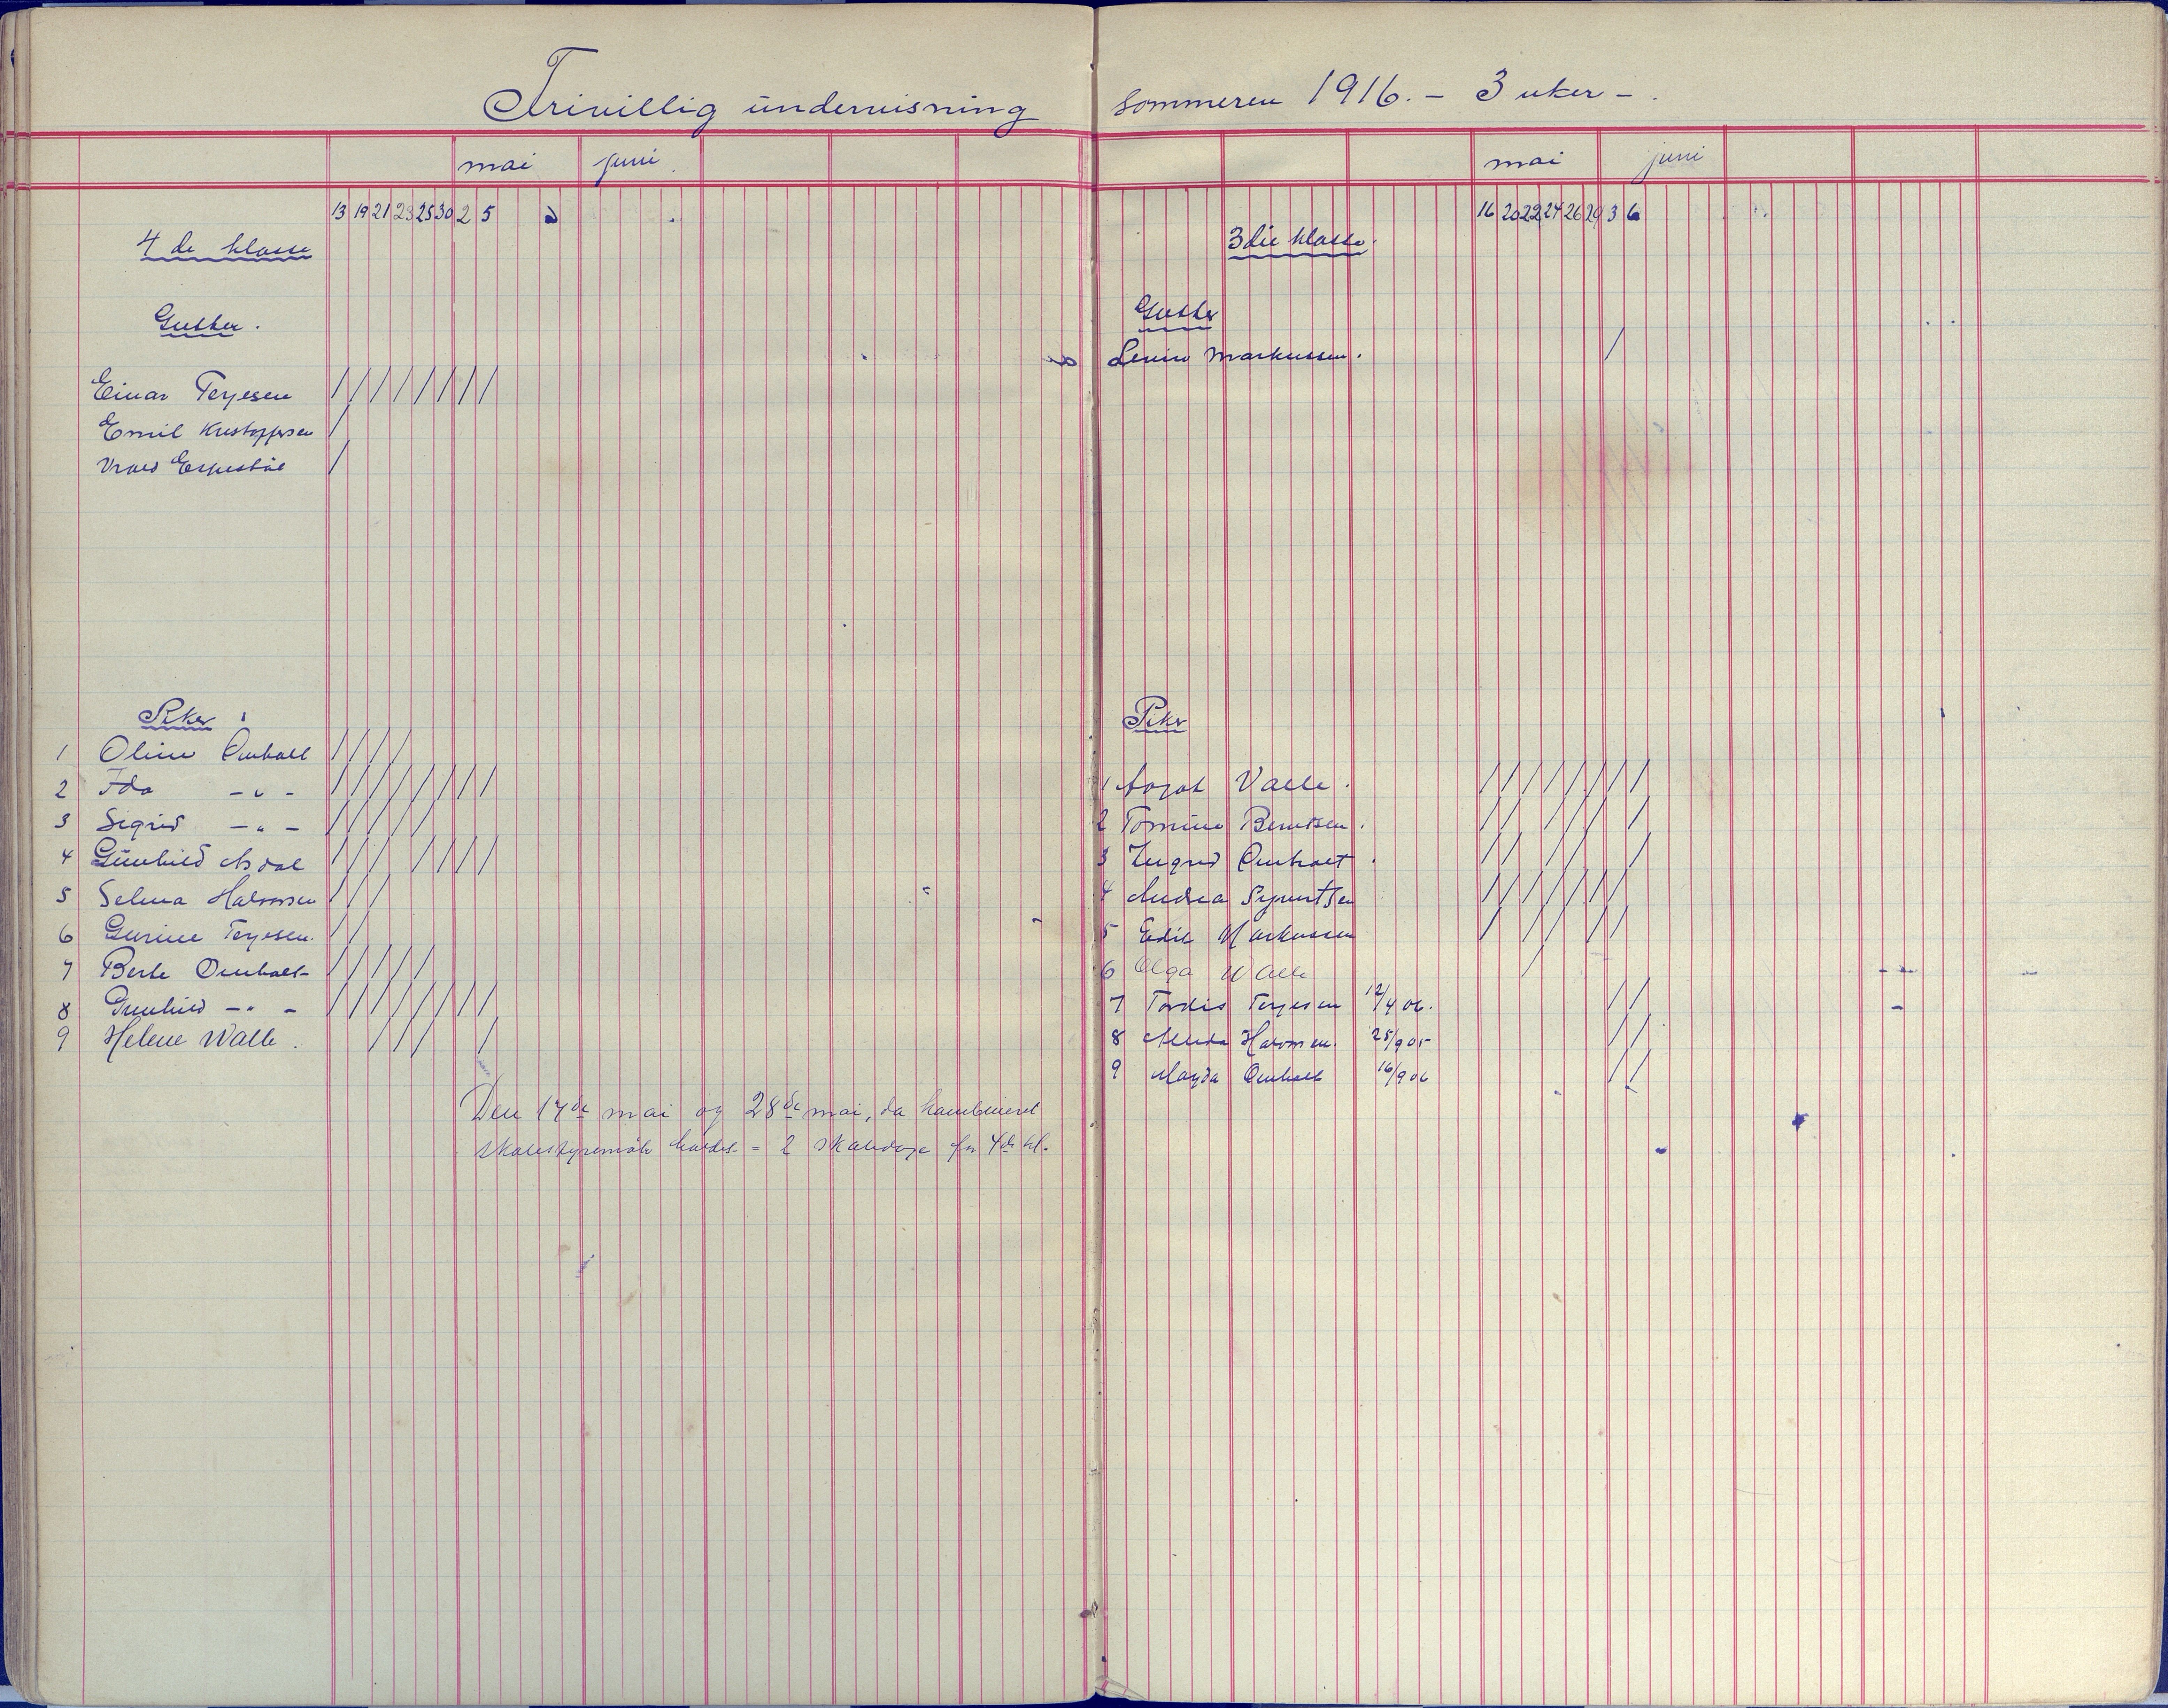 Frivillig undervisning sommeren 1916. – 3 uker –.
mai juni
13 19 21 23 25 30 2 5
4de klasse
Gutter.
Einar Terjesen / / / / / / / /
Emil Kristoffersen /
/
Piker
1 Oline Omholt / / / /
2 Ida – " – / / / / / / / /
3 Sigrid – " – / / / / /
4 Gunhild Asdal / / / / / / /
5 Selma Halvorsen / / /
6 Gurine Terjesen. / /
7 Berte Omholt / / / / /
8 Gunhild – " – / / / / / / / /
9 Helene Walle. / / / /
Den 17de mai og 28de mai, da kombineret
skolestyremøte holdes = 2 skoledage for 4de kl.
mai juni
16 20 22 24 26 29 3 6
3die klasse.
Gutter
Markussen. /
Piker
1 Aasat Valle. / / / / / / / /
2 Tomine Berntsen. / / / / / / /
3 Ingrid Omholt. / / / / /
4 Andrea Syvertsen / / / / / / /
5 Edil Markussen / / / / /
6 Olga Walle /
7 Tordis Terjesen 12/4 06. / /
8 Halvorsen. 25/9 05 / /
9 Magda Omholt 16/9 06 / /